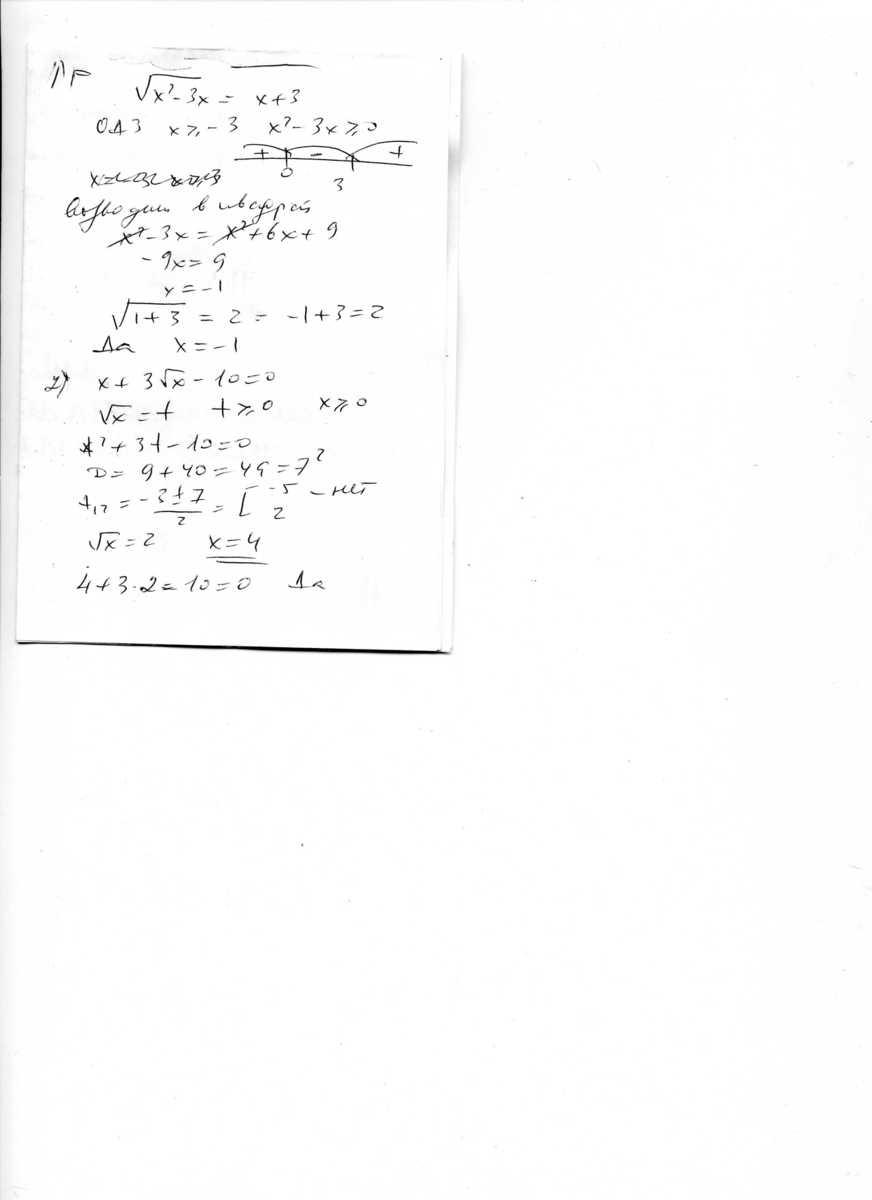 1)
√x²-3x = x+3
ОДЗ x≥-3 x²-3x≥0
+ - +
0 3
возводим в квадрат
x²-3x = x²+6x+9
-9x=9
x=-1
√1+3 = 2 = -1+3=2
Да x=-1
2) x+3√x-10=0
√x=t t≥0 x≥0
t²+3t-10=0
D= 9+40=49=7²
t₁₂ = -3±7/2 = [ -5 - нет
2
√x=2 x=4
4+3·2=10=0 Да